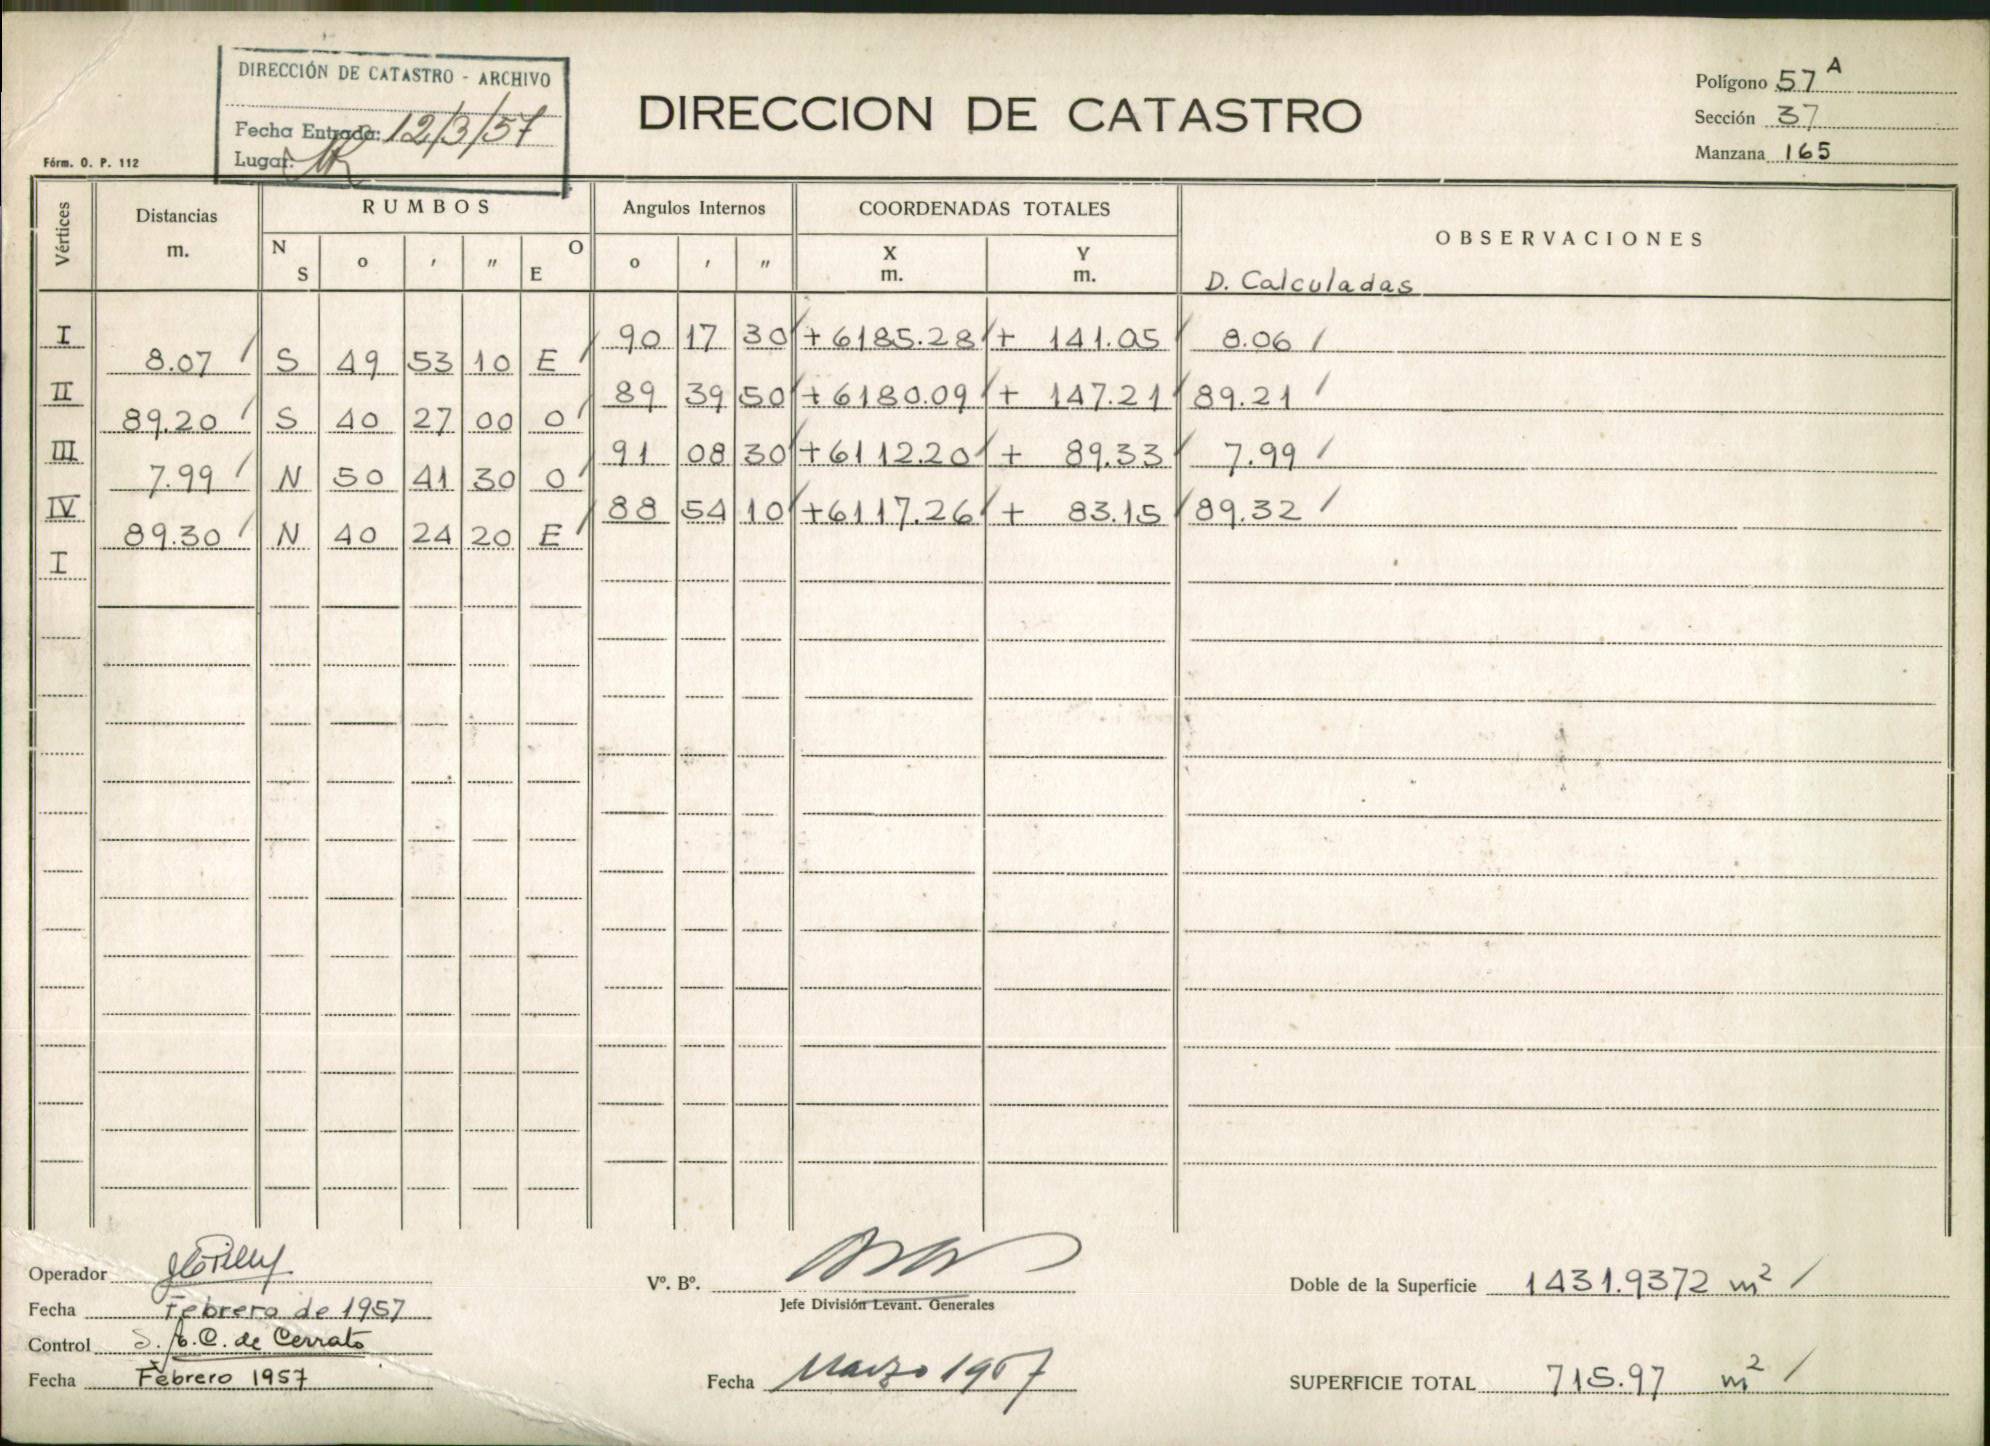 DIRECCIÓN DE CATASTRO - ARCHIVO
Fecha Entrada: 12/3/57
Lugar:
Fórm. O. P. 112
DIRECCION DE CATASTRO
Polígono 57 A
Sección 37
Manzana 165
Vértices Distancias m. RUMBOS N S o ' " O E Angulos Internos o ' " COORDENADAS TOTALES X m. Y m. OBSERVACIONES
D. Calculadas
I 90 17 30 + 6185.28 + 141.05 8.06
8.07 S 49 53 10 E
II 89 39 50 + 6180.09 + 147.21 89.21
89.20 S 40 27 00 O
III 91 08 30 + 6112.20 + 89.33 7.99
7.99 N 50 41 30 O
IV 88 54 10 + 6117.26 + 83.15 89.32
89.30 N 40 24 20 E
I
Operador
Fecha Febrero de 1957
Control C. de Cerrato
Fecha Febrero 1957
Vº. Bº.
Jefe División Levant. Generales
Fecha Marzo 1957
Doble de la Superficie 1431.9372 m²
SUPERFICIE TOTAL 715.97 m²